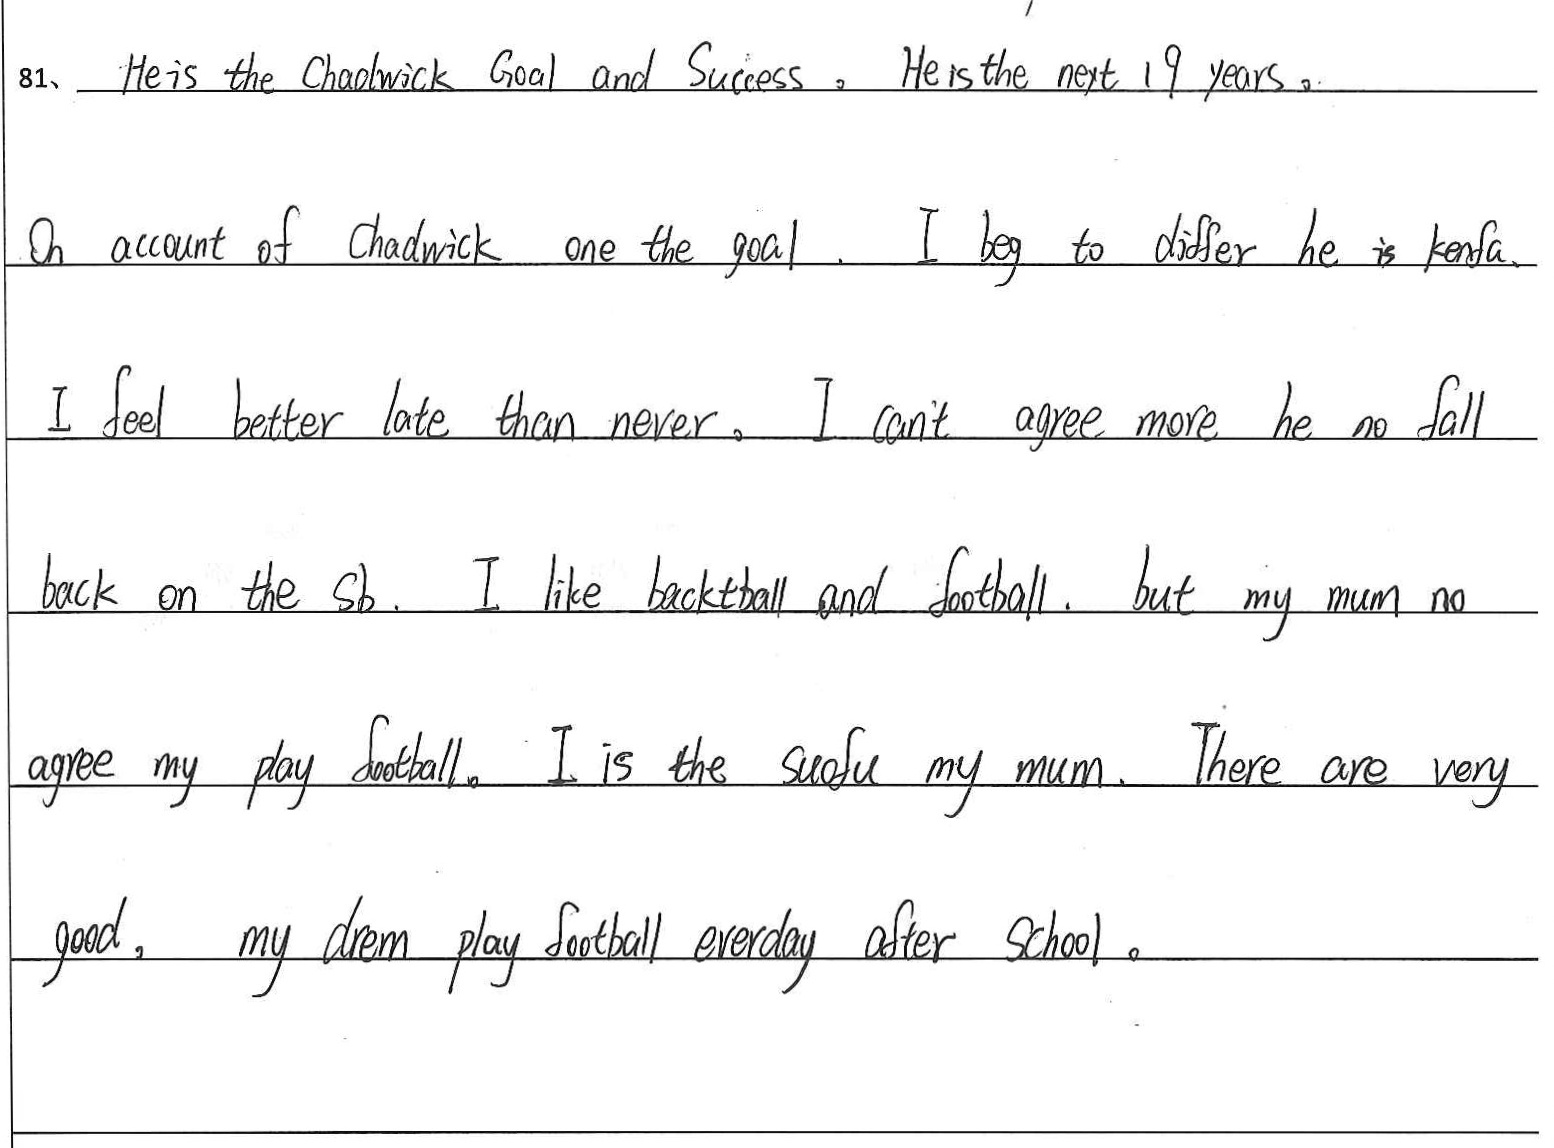 81、 He is the Chadwick Goal and Success。 He is the next 19 years。
On account of Chadwick one the goal. I beg to differ he is kenfa.
I feel better late than never。 I can't agree more he no fall
back on the sb. I like backtball and football. but my mum no
agree my play football。 I is the suofu my mum. There are very
good。 my drem play football everday after school。